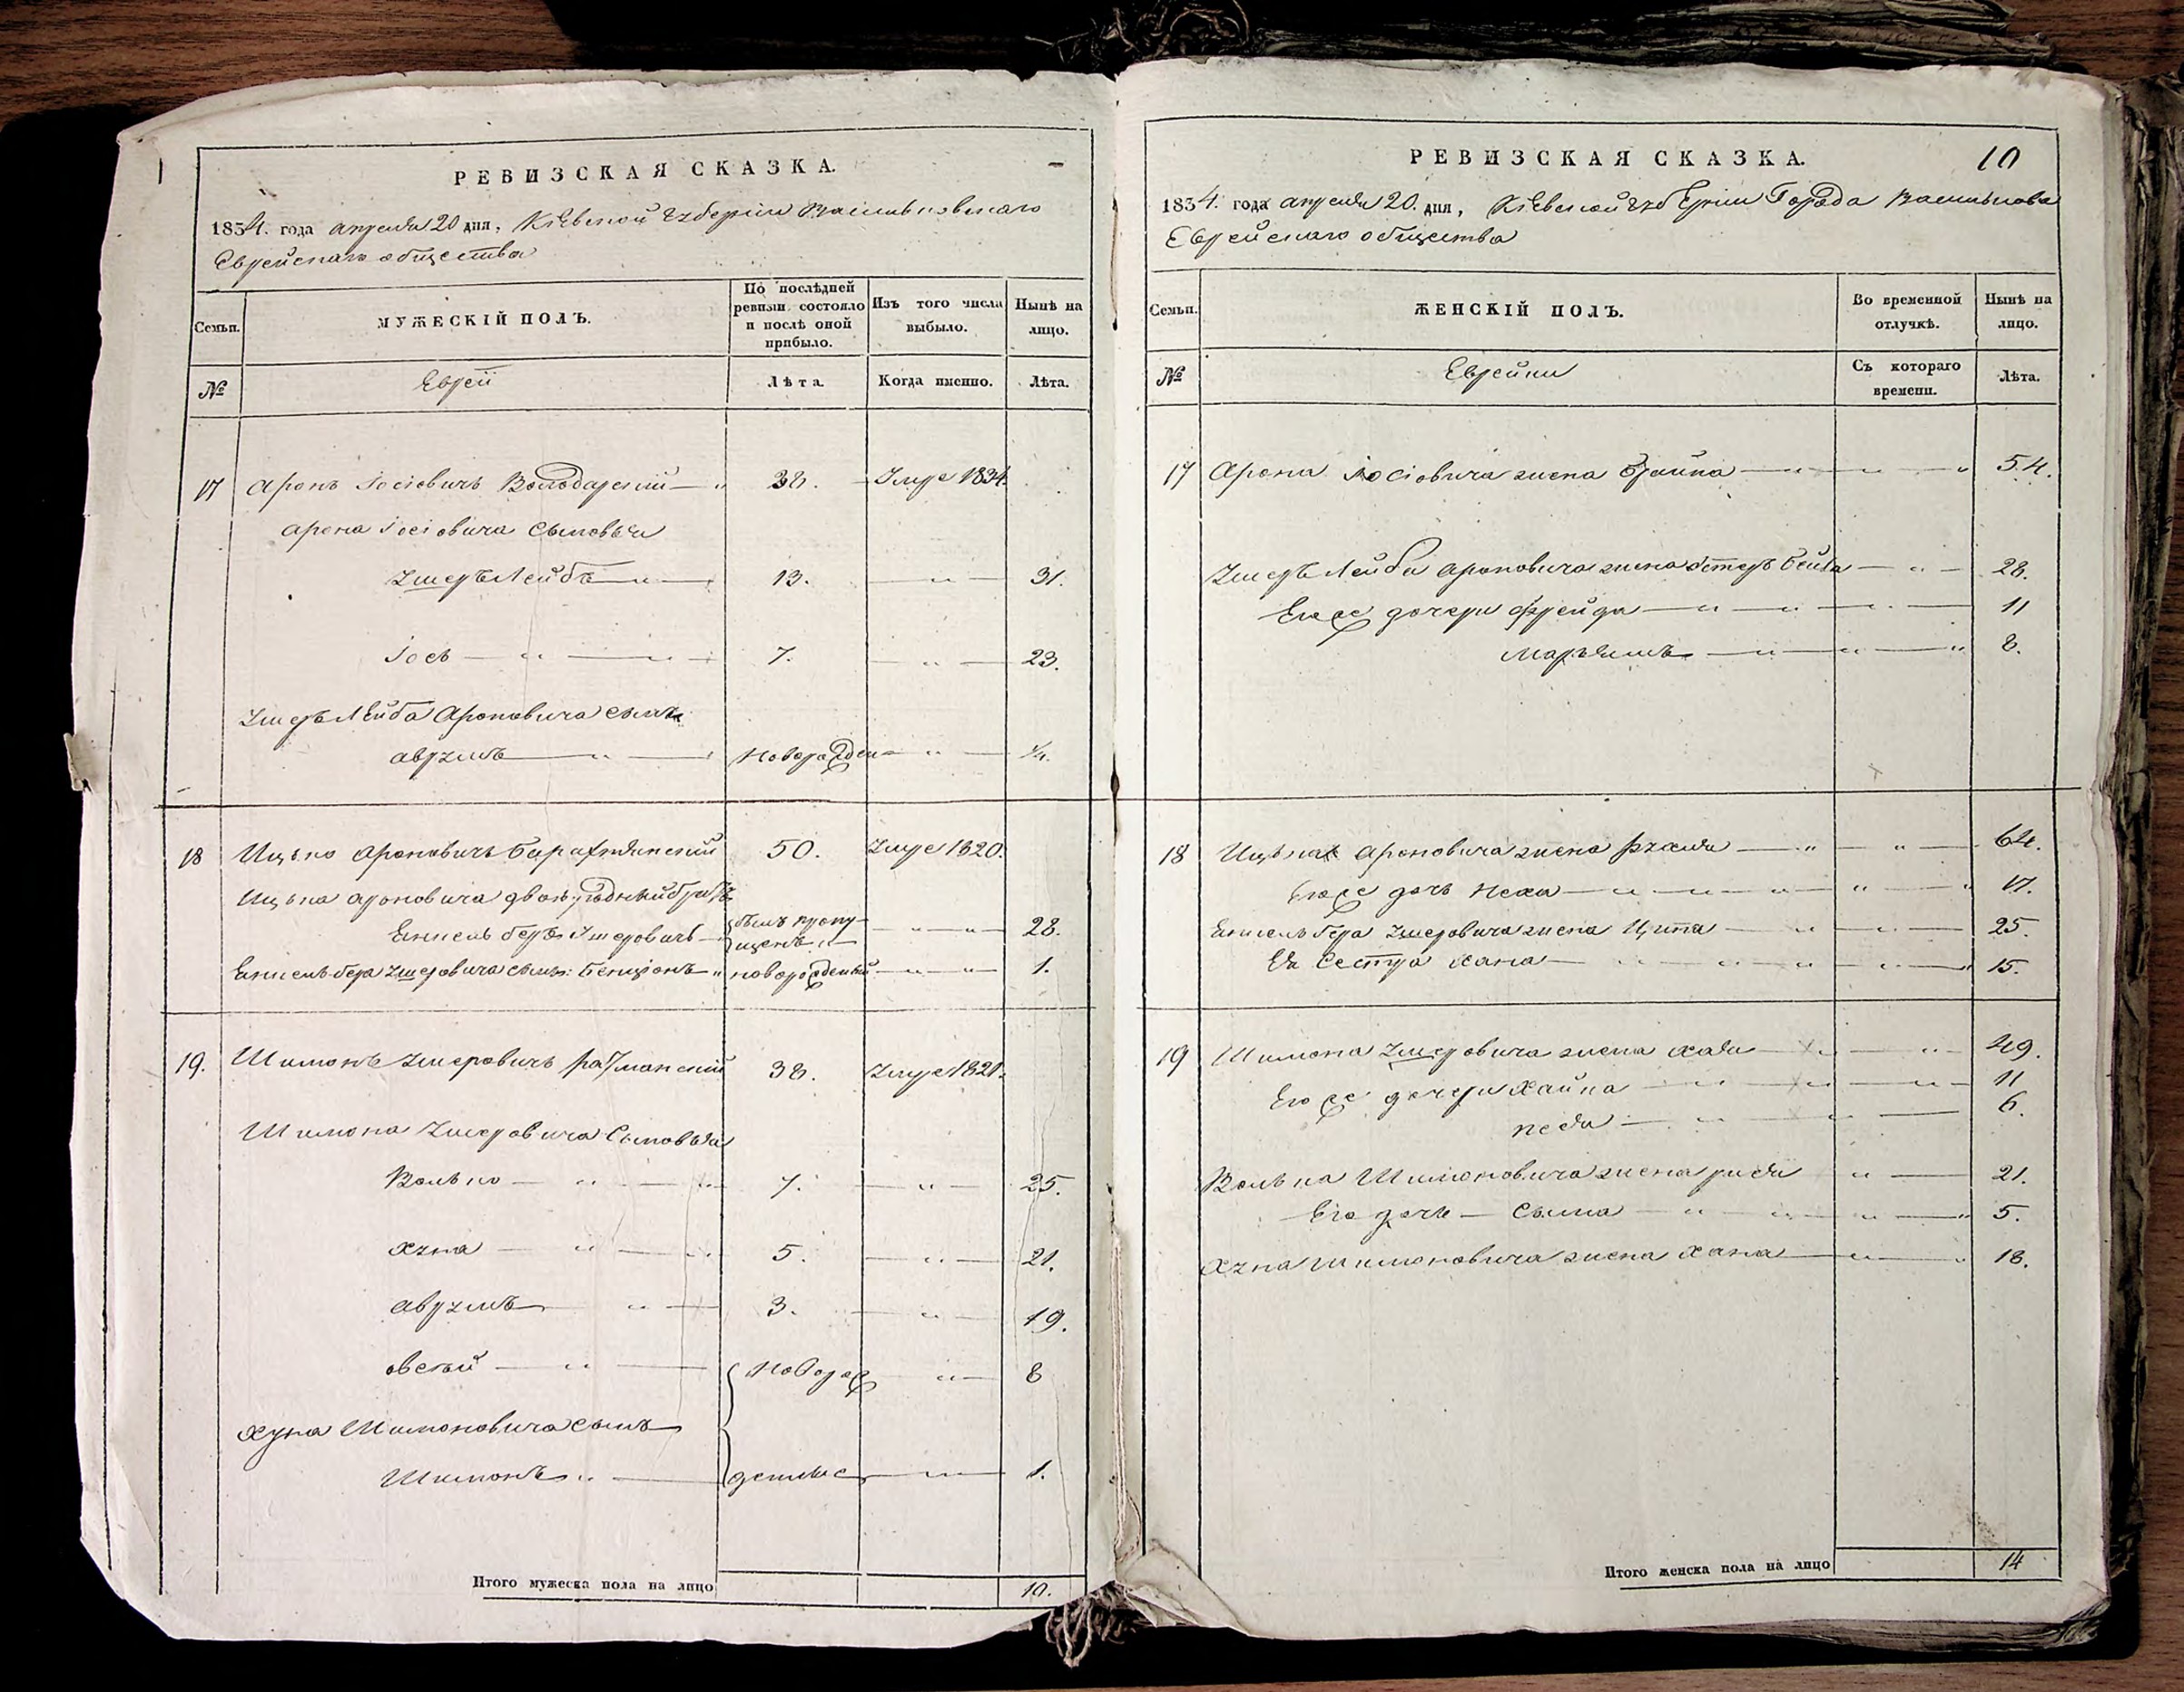 РЕВИЗСКАЯ СКАЗКА.
1834. года апреля 20 дня, Кіевской губерніи Васильковскаго
Еврейскаго общества
Семьи.
МУЖЕСКІЙ ПОЛЪ.
По послѣдней ревизіи состояло и послѣ оной прибыло.
Изъ того числа выбыло.
Нынѣ на лицо.
№
Евреи
Лѣта.
Когда именно.
Лѣта.
17 Аронъ Іосіовичъ Володарскій 38. Умре 1834.
Арона Іосіовича сыновья
Умеръ Лейбъ 13. 31.
Іось 7. 23.
Лейба Ароновича сынъ
Аврумъ новорожден ¼.
18 Ицько Ароновичъ 50. Умре 1820.
Ицька Ароновича двоюродный братъ
Беръ былъ пропущенъ 28.
Бера сынъ: Бенціонъ новорожденный 1.
19. Шимонъ 38. Умре 1821.
Шимона сыновья
Волько 7. 25.
Хуна 5. 21.
Аврумъ 3. 19.
Овсей новорож 8
Хуна Шимоновича сынъ
Шимонъ денные 1.
Итого мужеска пола на лицо 10.
РЕВИЗСКАЯ СКАЗКА. 10
1834. года апреля 20. дня, Кіевской губерніи Города Василькова
Еврейскаго общества
Семьи.
ЖЕНСКІЙ ПОЛЪ.
Во временной отлучкѣ.
Нынѣ на лицо.
№
Еврейки
Съ котораго времени.
Лѣта.
17 Арона Іосіовича жена 54.
Лейбы Ароновича жена Естеръ Бейла 28.
Его же дочери Фрейда 11
Марьямъ 8.
18 Ицька Ароновича жена Рухля 64.
Его же дочь Неха 17.
Бера жена Ципа 25.
Ея сестра Хана 15.
19 Шимона жена Хая 49.
Его же дочери Хайка 11
Песя 6.
Волька Шимоновича жена 21.
Его дочь Сима 5.
Хуна Шимоновича жена Хана 18.
Итого женска пола на лицо 14